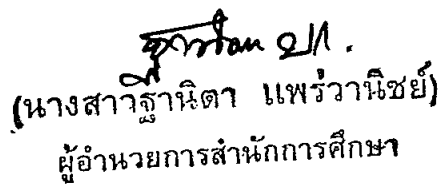 (นางสาวิฐานิตา แพร่วานิชย์)
ผู้อำนวยการสำนักการศึกษา